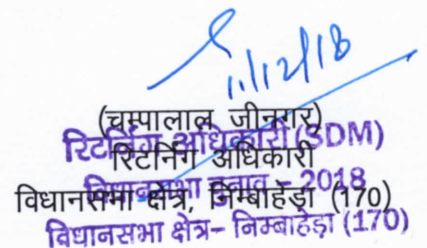 11/12/18
(चम्पालाल जीनगर)
रिटर्निंग अधिकारी (SDM)
रिटर्निंग अधिकारी
विधानसभा चुनाव - 2018
विधानसभा क्षेत्र, निम्बाहेड़ा (170)
विधानसभा क्षेत्र- निम्बाहेड़ा (170)